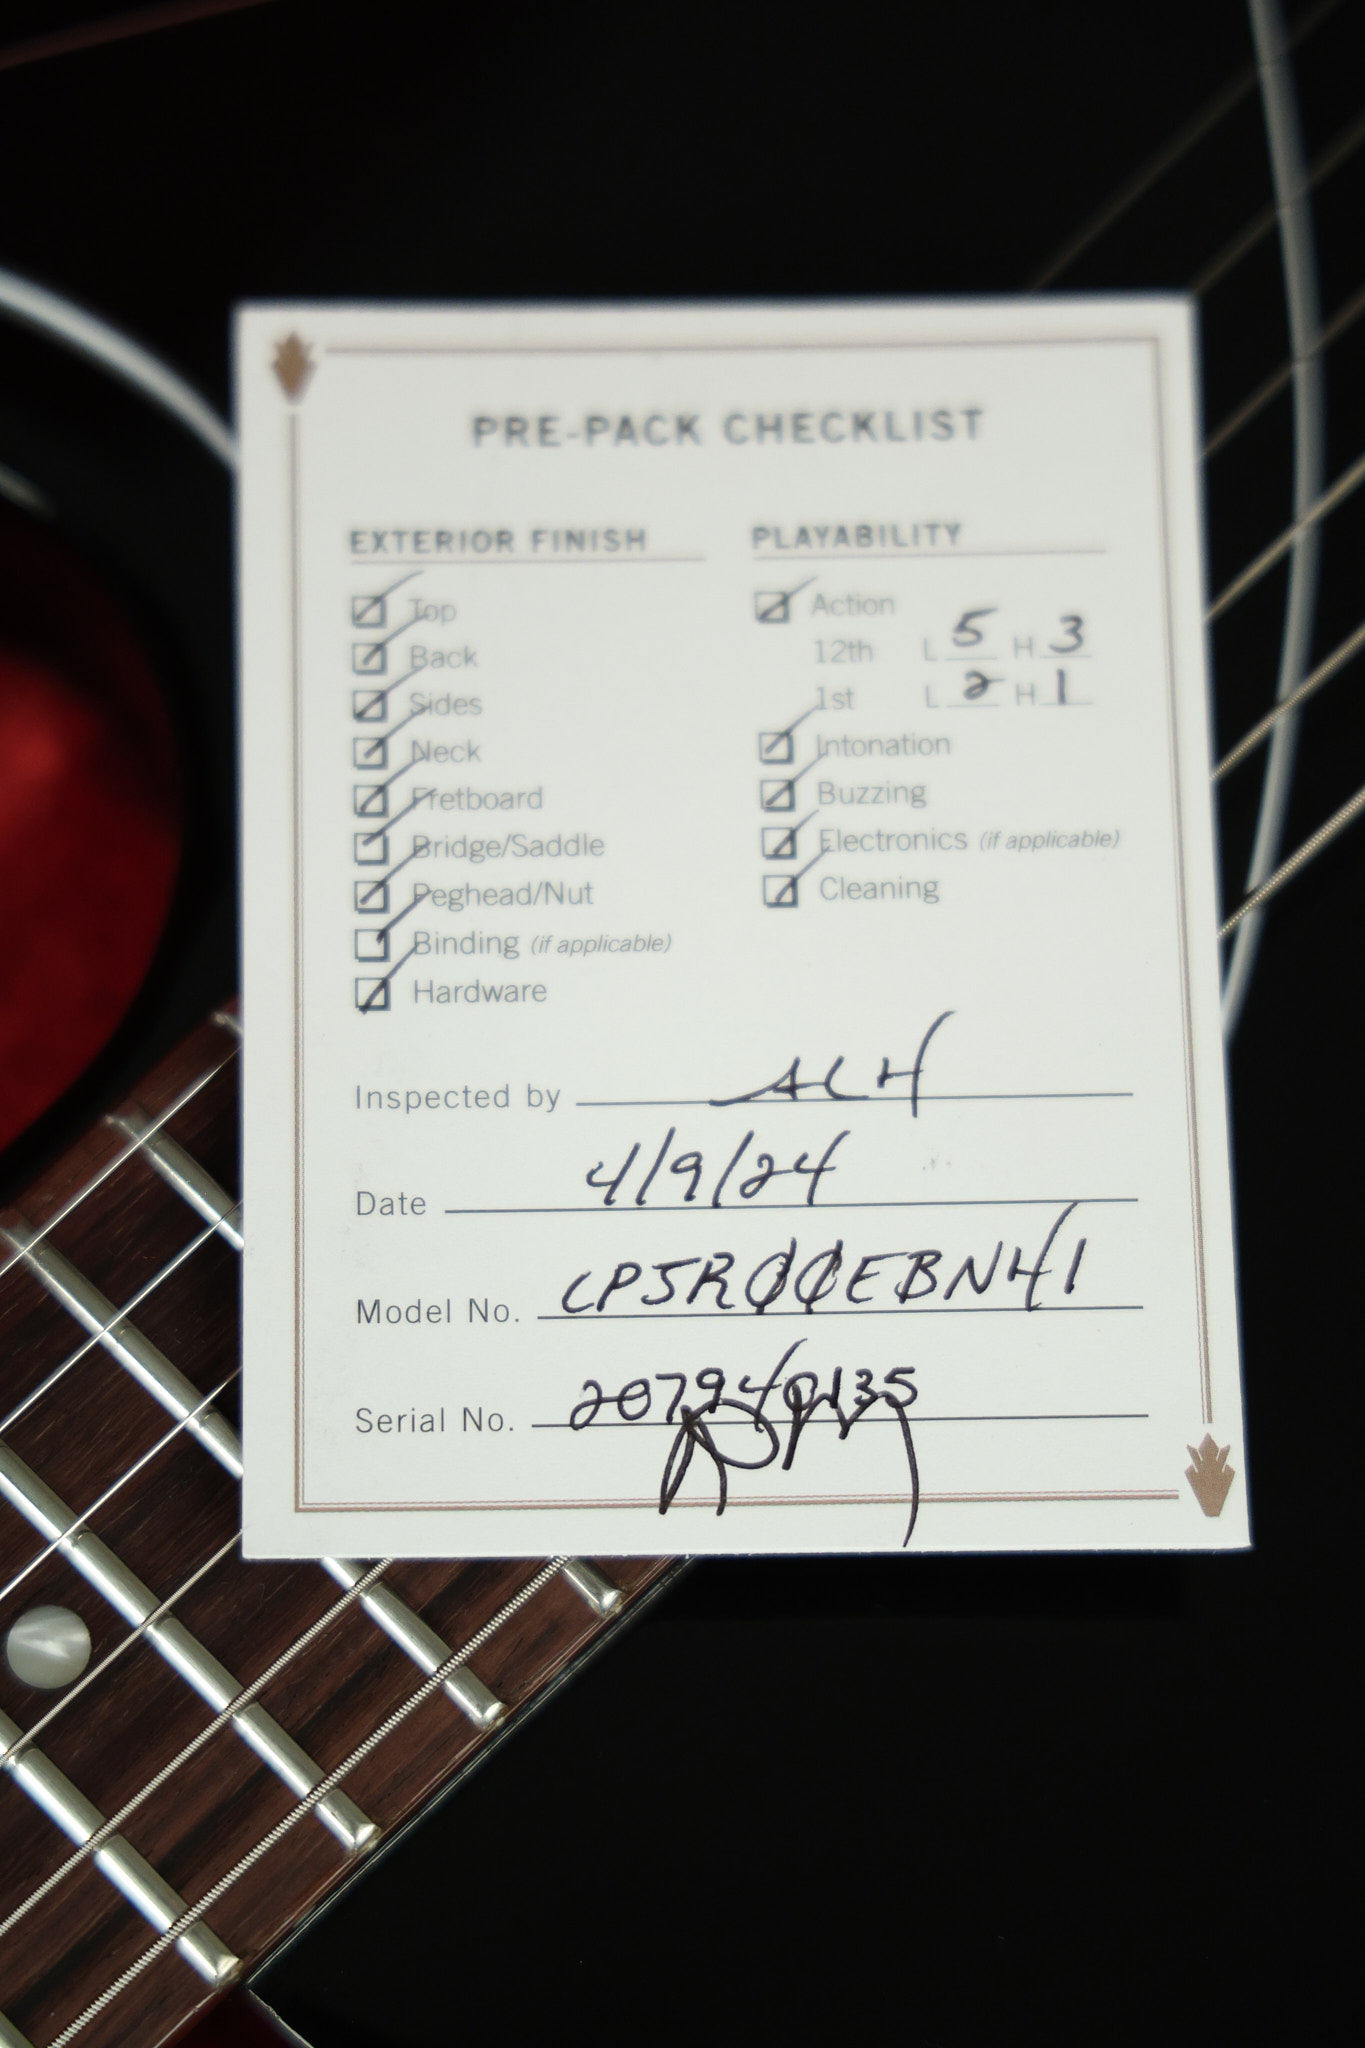 PRE-PACK CHECKLIST
EXTERIOR FINISH
Top
Back
Sides
Neck
Fretboard
Bridge/Saddle
Peghead/Nut
Binding (if applicable)
Hardware
PLAYABILITY
Action
12th L 5 H 3
1st L 2 H 1
Intonation
Buzzing
Electronics (if applicable)
Cleaning
Inspected by ALH
Date 4/9/24
Model No. LP5R00EBNH1
Serial No. 207940135